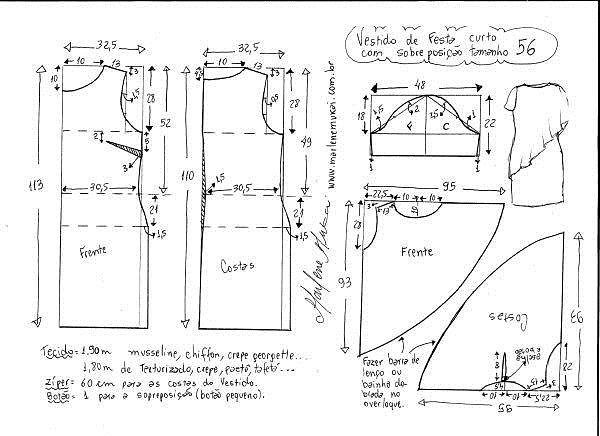 Vestido de Festa curto
com sobreposição tamanho 56
32,5
10
13
3
10
1,5
28
52
5
2
3
113
30,5
21
1,5
Frente
32,5
10
13
3
0,5
28
49
110
1,5
30,5
21
1,5
Costas
www.marlenemukai.com.br
Marlene Mukai
48
18
1,5
2
1,5
1
F
C
22
95
22,5
10
10
3
13
10
28
93
Frente
Costas
93
8
22,5
10
10
28
95
Fazer barra de
lenço ou
bainha do
brada no
overloque.
Tecido = 1,90m musseline, chiffon, crepe georgette...
1,80m de Texturizado, crepe, tafetá...
Zíper = 60cm para as costas do Vestido.
Botão = 1 para a sopreposição (botão pequeno).